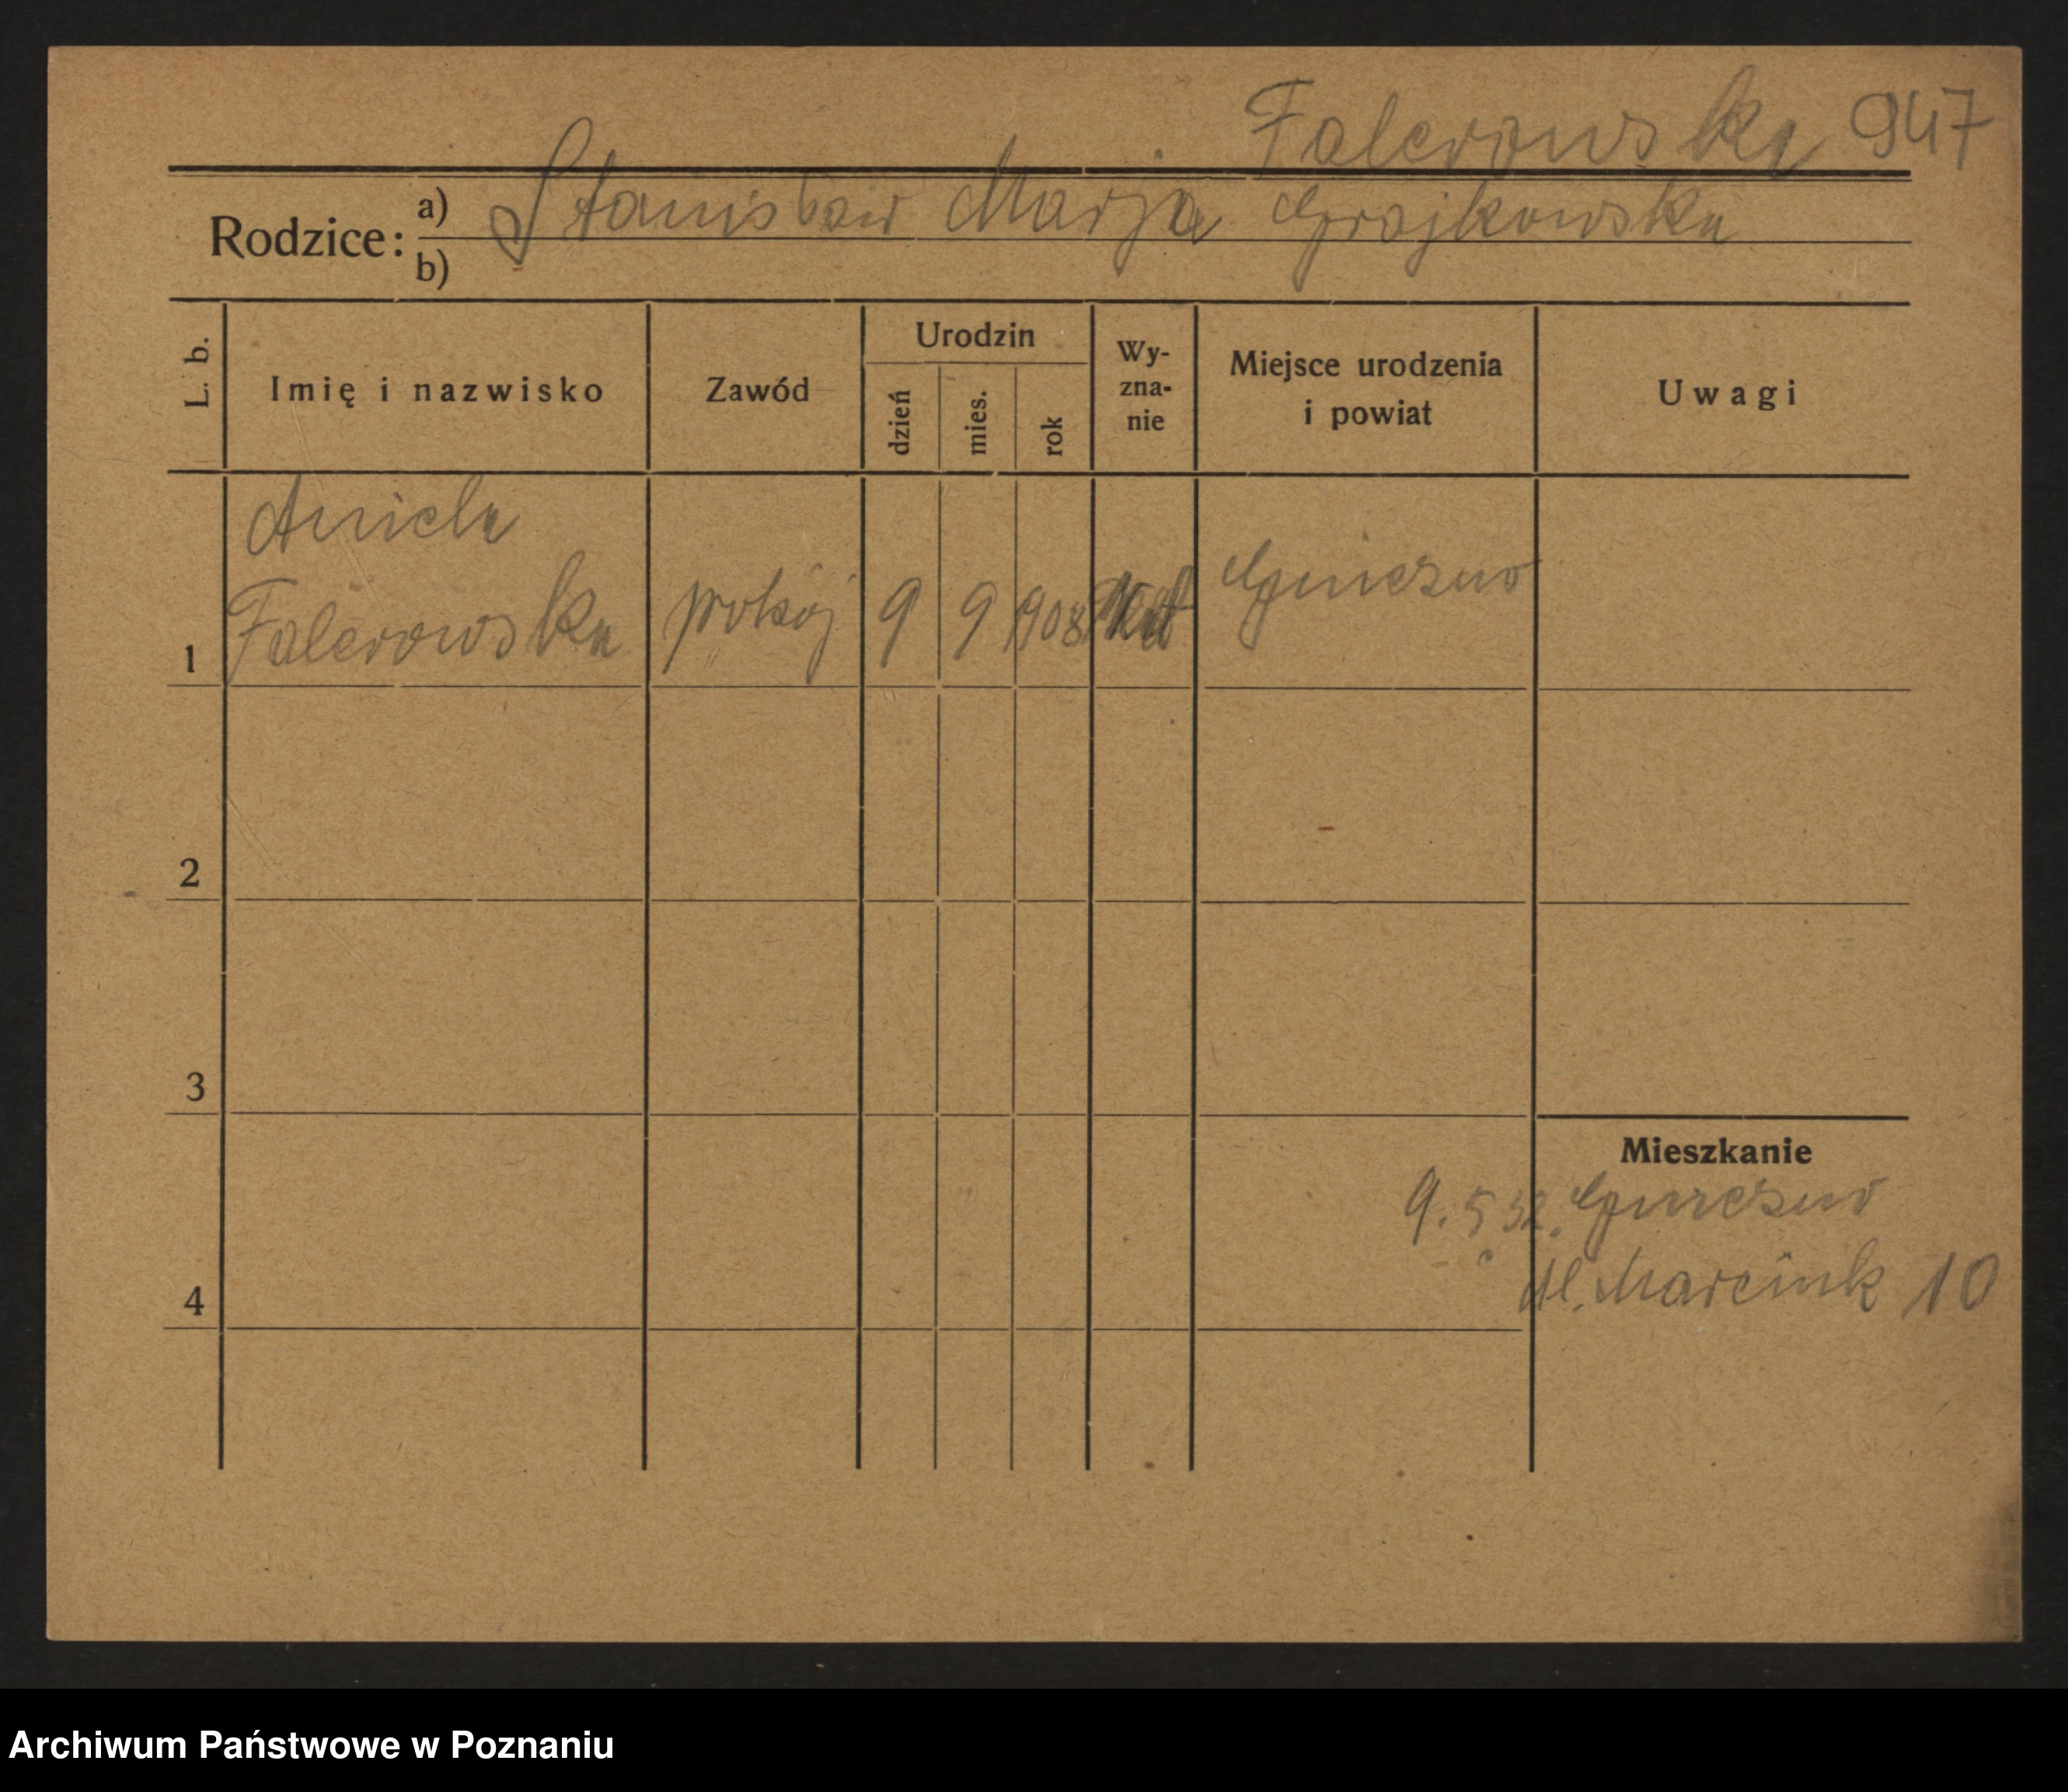 Falerowska 947
Rodzice:
a) Stanisław Marja Grajkowska
b)
L. b.
Imię i nazwisko
Zawód
Urodzin
dzień
mies.
rok
Wy-
zna-
nie
Miejsce urodzenia
i powiat
Uwagi
Aniela
Falerowska
1
pokój
9
9
908
kat
Gniezno
2
3
4
Mieszkanie
9. 5 32. Gniezno
Al. Marcink 10
Archiwum Państwowe w Poznaniu